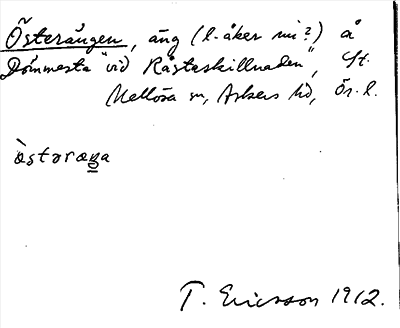 Österängen, äng (l. åker nu?) å
Dömmesta "vid Råstaskillnaden", St.
Mellösa sn, Askers hd, Ör. l.
östəräŋa
T. Ericsson 1912.